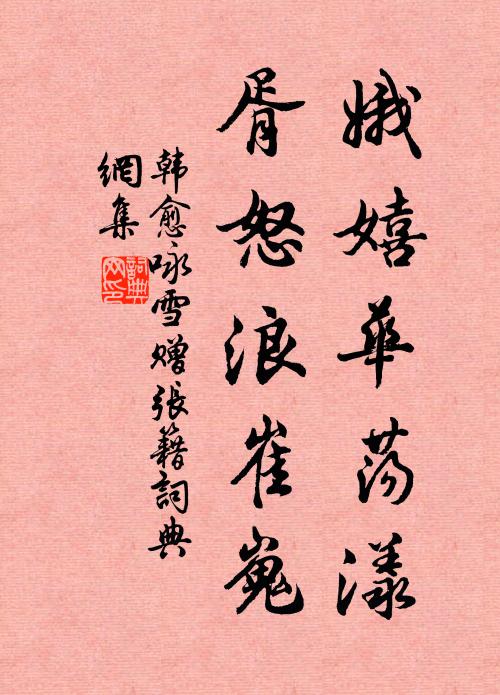 娥嬉華荡漾
胥怒浪崔嵬
韩愈咏雪赠张籍詞典
網集
詞典
网印